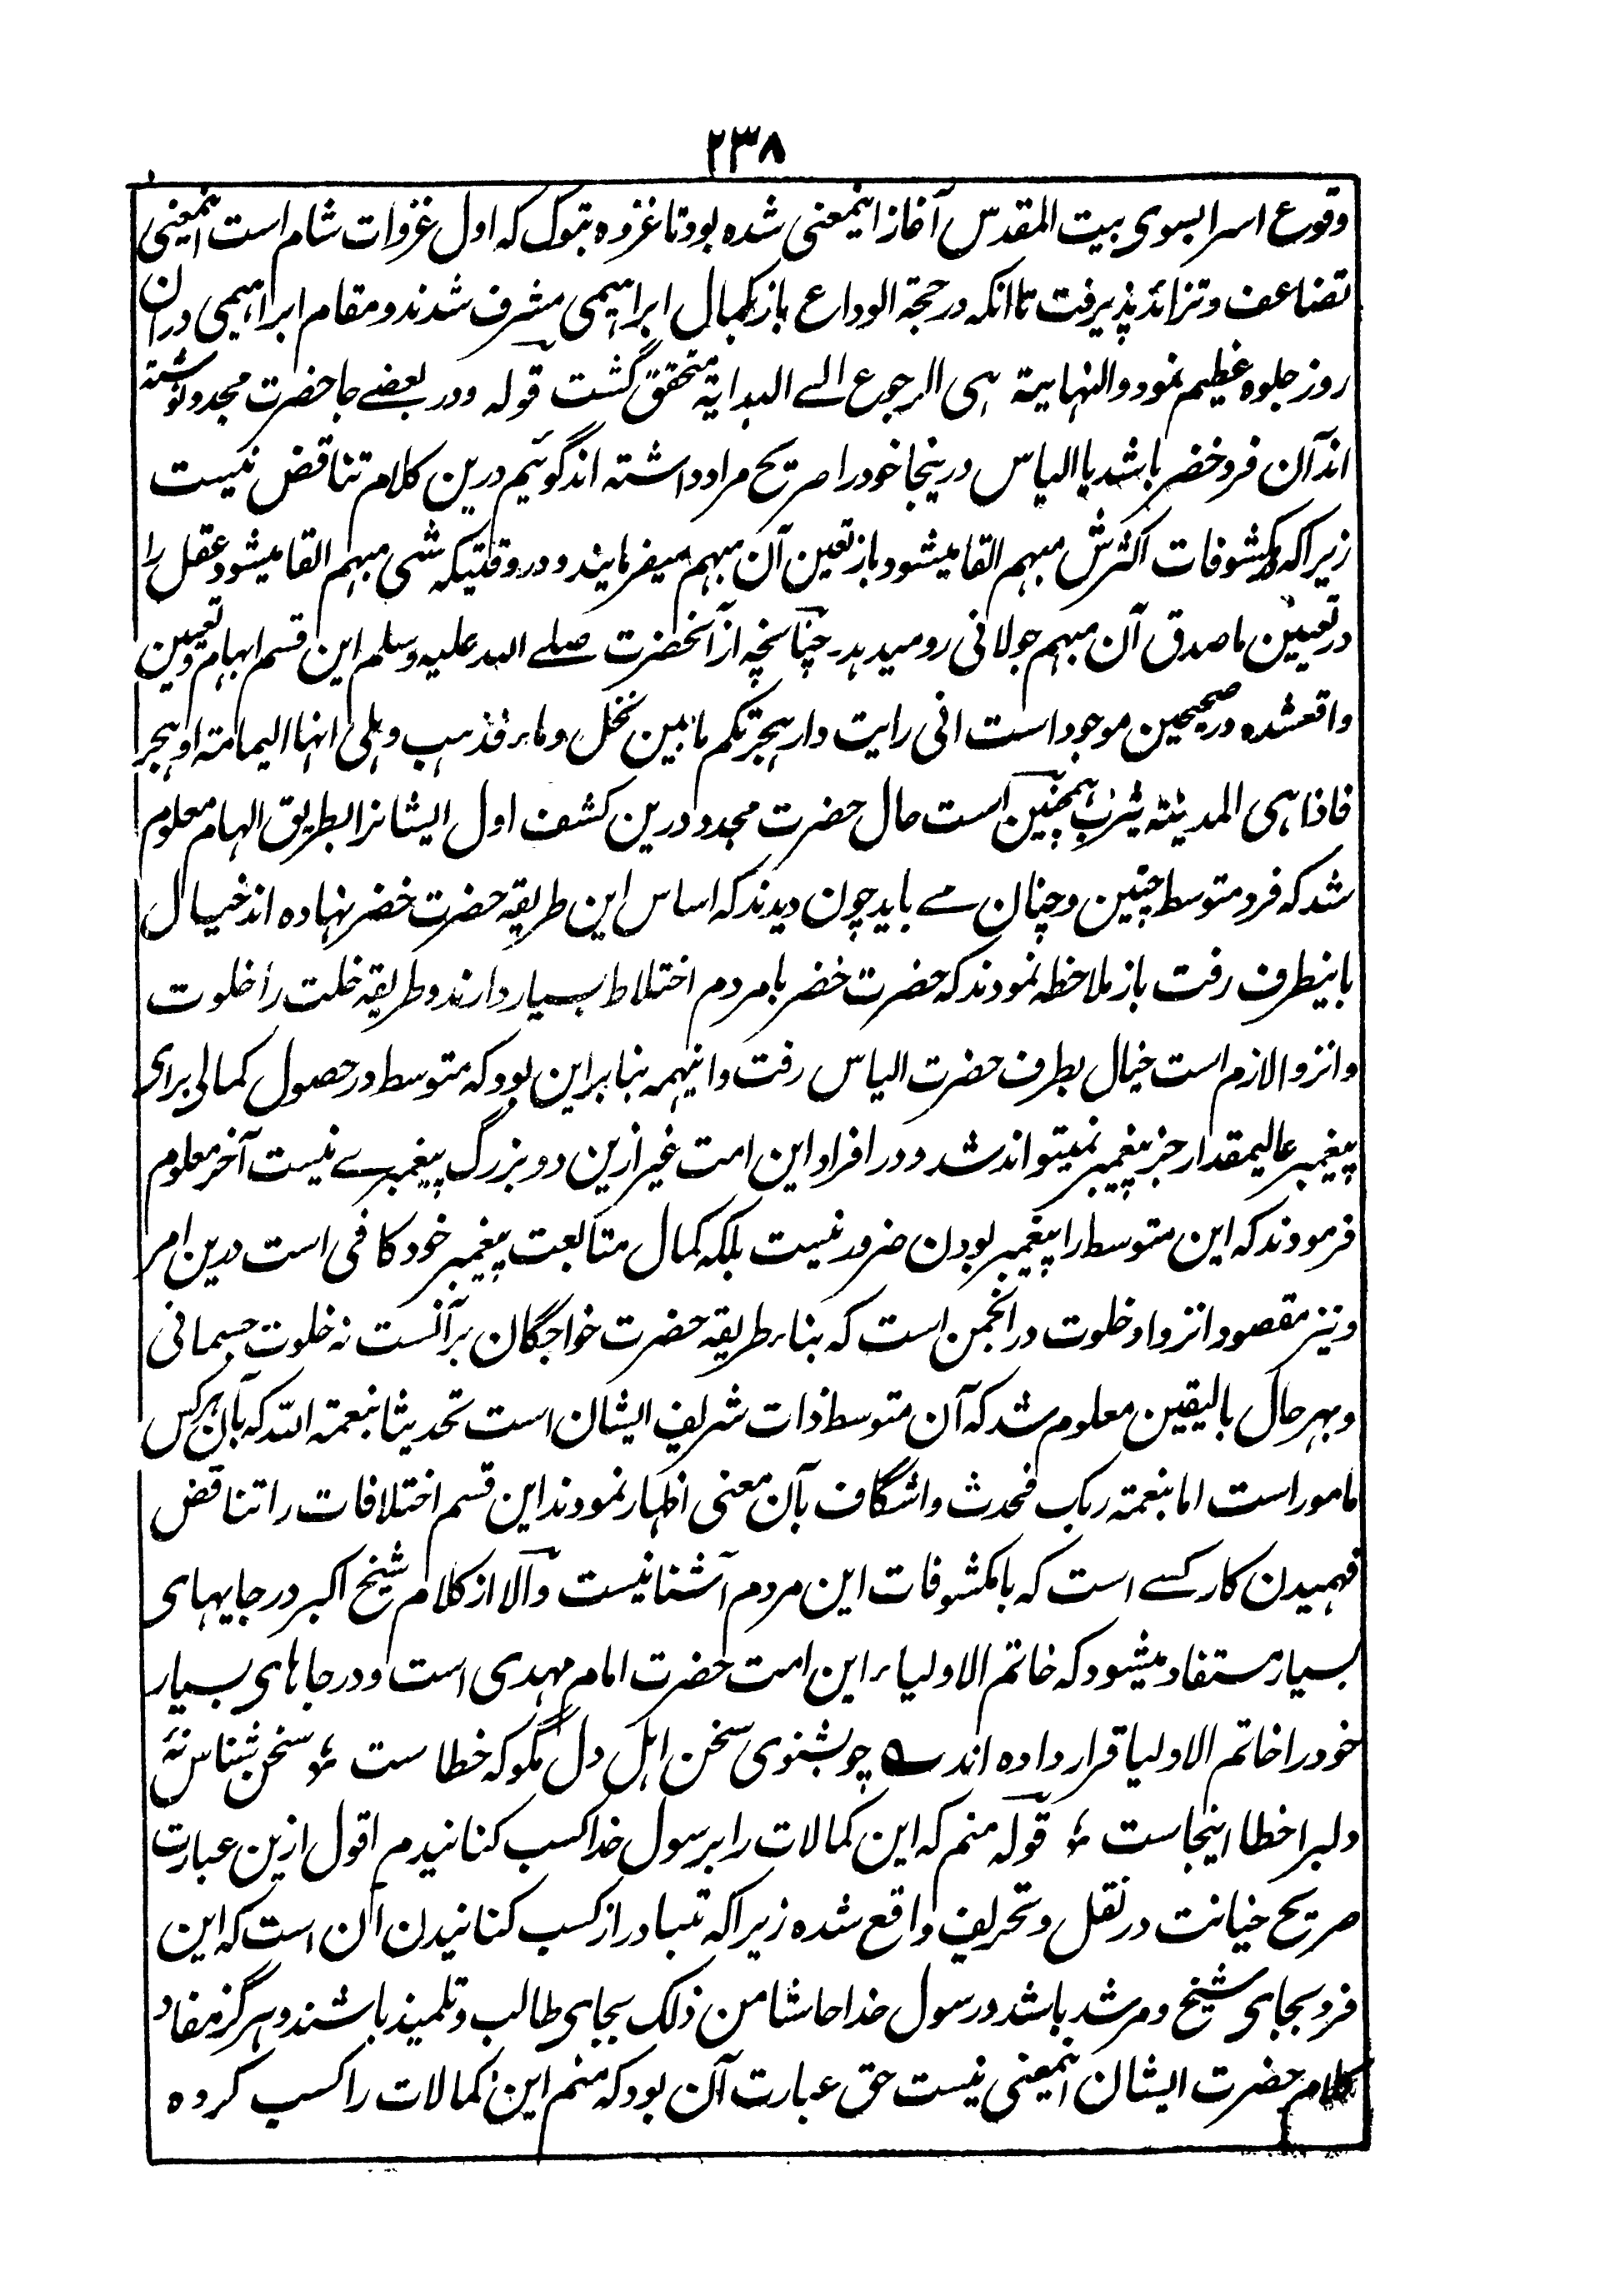 ۲۳۸
وقوع اسرا بسوی بیت المقدس آغاز اینمعنی شده بود تا غزوه تبوک که اول غزوات شام است اینمعنی
تضاعف و تزائد پذیرفت تا آنکه در حجة الوداع باز بکمال ابراهیمی مشرف شدند و مقام ابراهیمی دران
روز جلوه عظیم نمود والنهایة هی الرجوع الے البدایة متحقق گشت قوله و در بعضے جا حضرت مجدد نوشته
اند آن فرد خضر باشد یا الیاس درینجا خود را صریح مراد داشته اند گوئیم درین کلام تناقض نیست
زیرا که در کشوفات اکثرش مبهم القا میشود باز تعین آن مبهم میفرمایند و در وقتیکه شی مبهم القا میشود عقل را
در تعیین ماصدق آن مبهم جولانی رو میدهد چنانچه از آنحضرت صلے الله علیه وسلم این قسم ابهام و تعیین
واقعشده در صحیحین موجود است انی رایت دار هجرتکم مابین نخل وماء فذهب وهلی انها الیمامة او هجر
فاذا هی المدینة یثرب همچنین است حال حضرت مجدد درین کشف اول ایشانرا بطریق الهام معلوم
شد که فرد متوسط چنین و چنان مے باید چون دیدند که اساس این طریقه حضرت خضر نهاده اند خیال
باینطرف رفت باز ملاحظه نمودند که حضرت خضر با مردم اختلاط بسیار دارند و طریقه خلت را خلوت
و انزوا لازم است خیال بطرف حضرت الیاس رفت و اینهمه بنابر این بود که متوسط در حصول کمالی برای
پیغمبر عالیمقدار جز پیغمبر نمیتواند شد و در افراد این امت غیر ازین دو بزرگ پیغمبرے نیست آخر معلوم
فرمودند که این متوسط را پیغمبر بودن ضرور نیست بلکه کمال متابعت پیغمبر خود کافی است درین امر
و نیز مقصود انزوا و خلوت در انجمن است که بناء طریقه حضرت خواجگان بر آنست نه خلوت جسمانی
و بهر حال بالیقین معلوم شد که آن متوسط ذات شریف ایشان است تحدیثا بنعمة الله که بآن هر کس
مامور است اما بنعمة ربک فحدث واشگاف بآن معنی اظهار نمودند این قسم اختلافات را تناقض
فهمیدن کار کسے است که با مکشوفات این مردم آشنا نیست و الا از کلام شیخ اکبر در جایهای
بسیار مستفاد میشود که خاتم الاولیاء این امت حضرت امام مهدی است و در جاهای بسیار
خود را خاتم الاولیا قرار داده اند ؎ چو بشنوی سخن اهل دل مگو که خطا ست ؛ سخن شناس نۀ
دلبرا خطا اینجاست ؛ قوله منم که این کمالات را بر سول خدا کسب کنانیدم اقول ازین عبارت
صریح خیانت در نقل و تحریف واقع شده زیرا که تبادر از کسب کنانیدن آن است که این
فرد بجای شیخ و مرشد باشد و رسول خدا حاشا من ذلک بجای طالب و تلمیذ باشند و هرگز مفاد
کلام حضرت ایشان اینمعنی نیست حق عبارت آن بود که منم این کمالات را کسب کرده